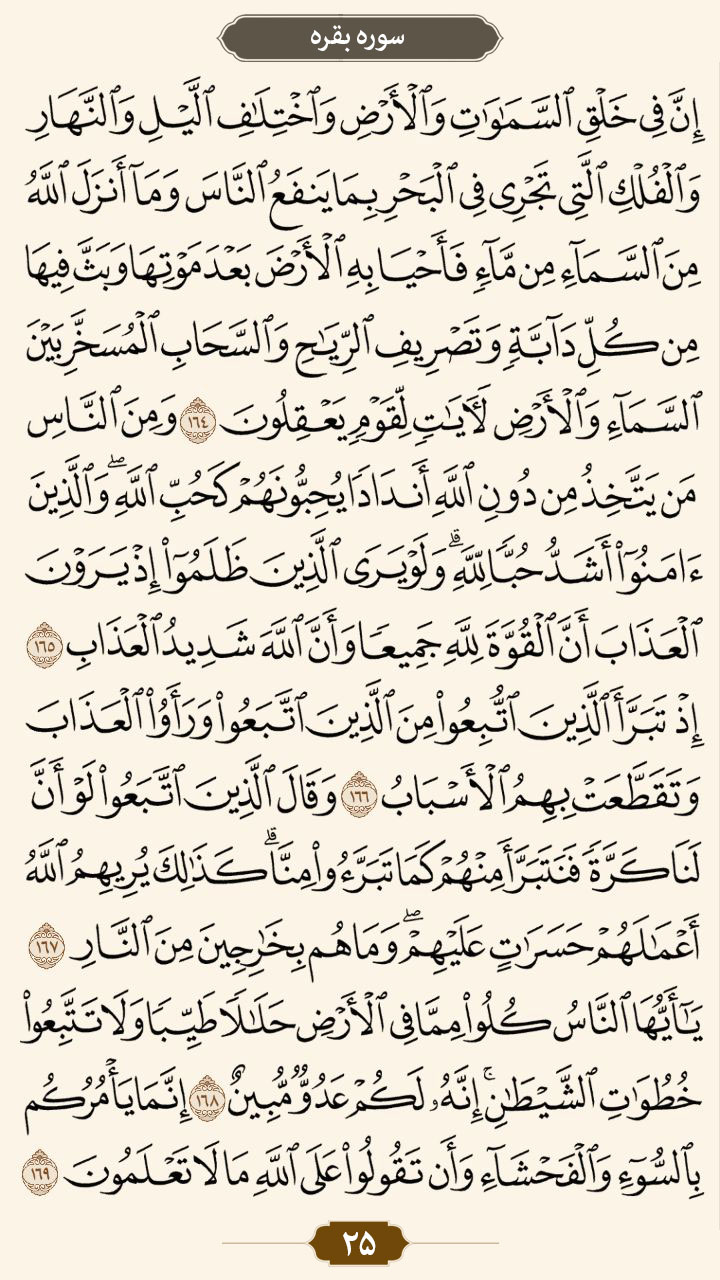 سوره بقره
إِنَّ فِي خَلْقِ ٱلسَّمَٰوَٰتِ وَٱلْأَرْضِ وَٱخْتِلَٰفِ ٱلَّيْلِ وَٱلنَّهَارِ
وَٱلْفُلْكِ ٱلَّتِي تَجْرِي فِي ٱلْبَحْرِ بِمَا يَنفَعُ ٱلنَّاسَ وَمَآ أَنزَلَ ٱللَّهُ
مِنَ ٱلسَّمَآءِ مِن مَّآءٍ فَأَحْيَا بِهِ ٱلْأَرْضَ بَعْدَ مَوْتِهَا وَبَثَّ فِيهَا
مِن كُلِّ دَآبَّةٍ وَتَصْرِيفِ ٱلرِّيَٰحِ وَٱلسَّحَابِ ٱلْمُسَخَّرِ بَيْنَ
ٱلسَّمَآءِ وَٱلْأَرْضِ لَأٓيَٰتٍ لِّقَوْمٍ يَعْقِلُونَ ١٦٤ وَمِنَ ٱلنَّاسِ
مَن يَتَّخِذُ مِن دُونِ ٱللَّهِ أَندَادًا يُحِبُّونَهُمْ كَحُبِّ ٱللَّهِۖ وَٱلَّذِينَ
ءَامَنُوٓا۟ أَشَدُّ حُبًّا لِّلَّهِۗ وَلَوْ يَرَى ٱلَّذِينَ ظَلَمُوٓا۟ إِذْ يَرَوْنَ
ٱلْعَذَابَ أَنَّ ٱلْقُوَّةَ لِلَّهِ جَمِيعًا وَأَنَّ ٱللَّهَ شَدِيدُ ٱلْعَذَابِ ١٦٥
إِذْ تَبَرَّأَ ٱلَّذِينَ ٱتُّبِعُوا۟ مِنَ ٱلَّذِينَ ٱتَّبَعُوا۟ وَرَأَوُا۟ ٱلْعَذَابَ
وَتَقَطَّعَتْ بِهِمُ ٱلْأَسْبَابُ ١٦٦ وَقَالَ ٱلَّذِينَ ٱتَّبَعُوا۟ لَوْ أَنَّ
لَنَا كَرَّةً فَنَتَبَرَّأَ مِنْهُمْ كَمَا تَبَرَّءُوا۟ مِنَّاۗ كَذَٰلِكَ يُرِيهِمُ ٱللَّهُ
أَعْمَٰلَهُمْ حَسَرَٰتٍ عَلَيْهِمْۖ وَمَا هُم بِخَٰرِجِينَ مِنَ ٱلنَّارِ ١٦٧
يَٰٓأَيُّهَا ٱلنَّاسُ كُلُوا۟ مِمَّا فِي ٱلْأَرْضِ حَلَٰلًا طَيِّبًا وَلَا تَتَّبِعُوا۟
خُطُوَٰتِ ٱلشَّيْطَٰنِۚ إِنَّهُۥ لَكُمْ عَدُوٌّ مُّبِينٌ ١٦٨ إِنَّمَا يَأْمُرُكُم
بِٱلسُّوٓءِ وَٱلْفَحْشَآءِ وَأَن تَقُولُوا۟ عَلَى ٱللَّهِ مَا لَا تَعْلَمُونَ ١٦٩
۲۵